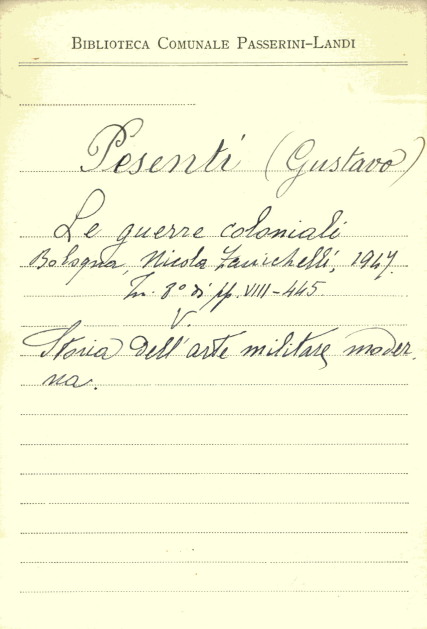 BIBLIOTECA COMUNALE PASSERINI-LANDI
Pesenti (Gustavo)
Le guerre coloniali
Bologna, Nicola Zanichelli, 1947.
In. 8º di pp. VIII-445
V.
Storia dell'arte militare moder-
na.